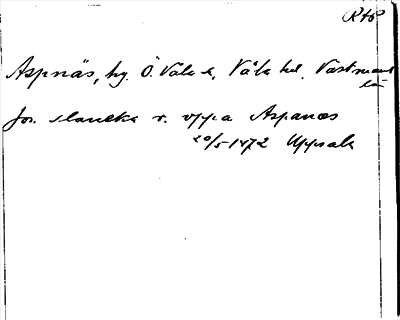 R46
Aspnäs, hg. Ö. Våla s., Våla hd. Västmanl.
län
Jos. slaneka r. oppa Aspanæs
20/5 1472 Uppsala